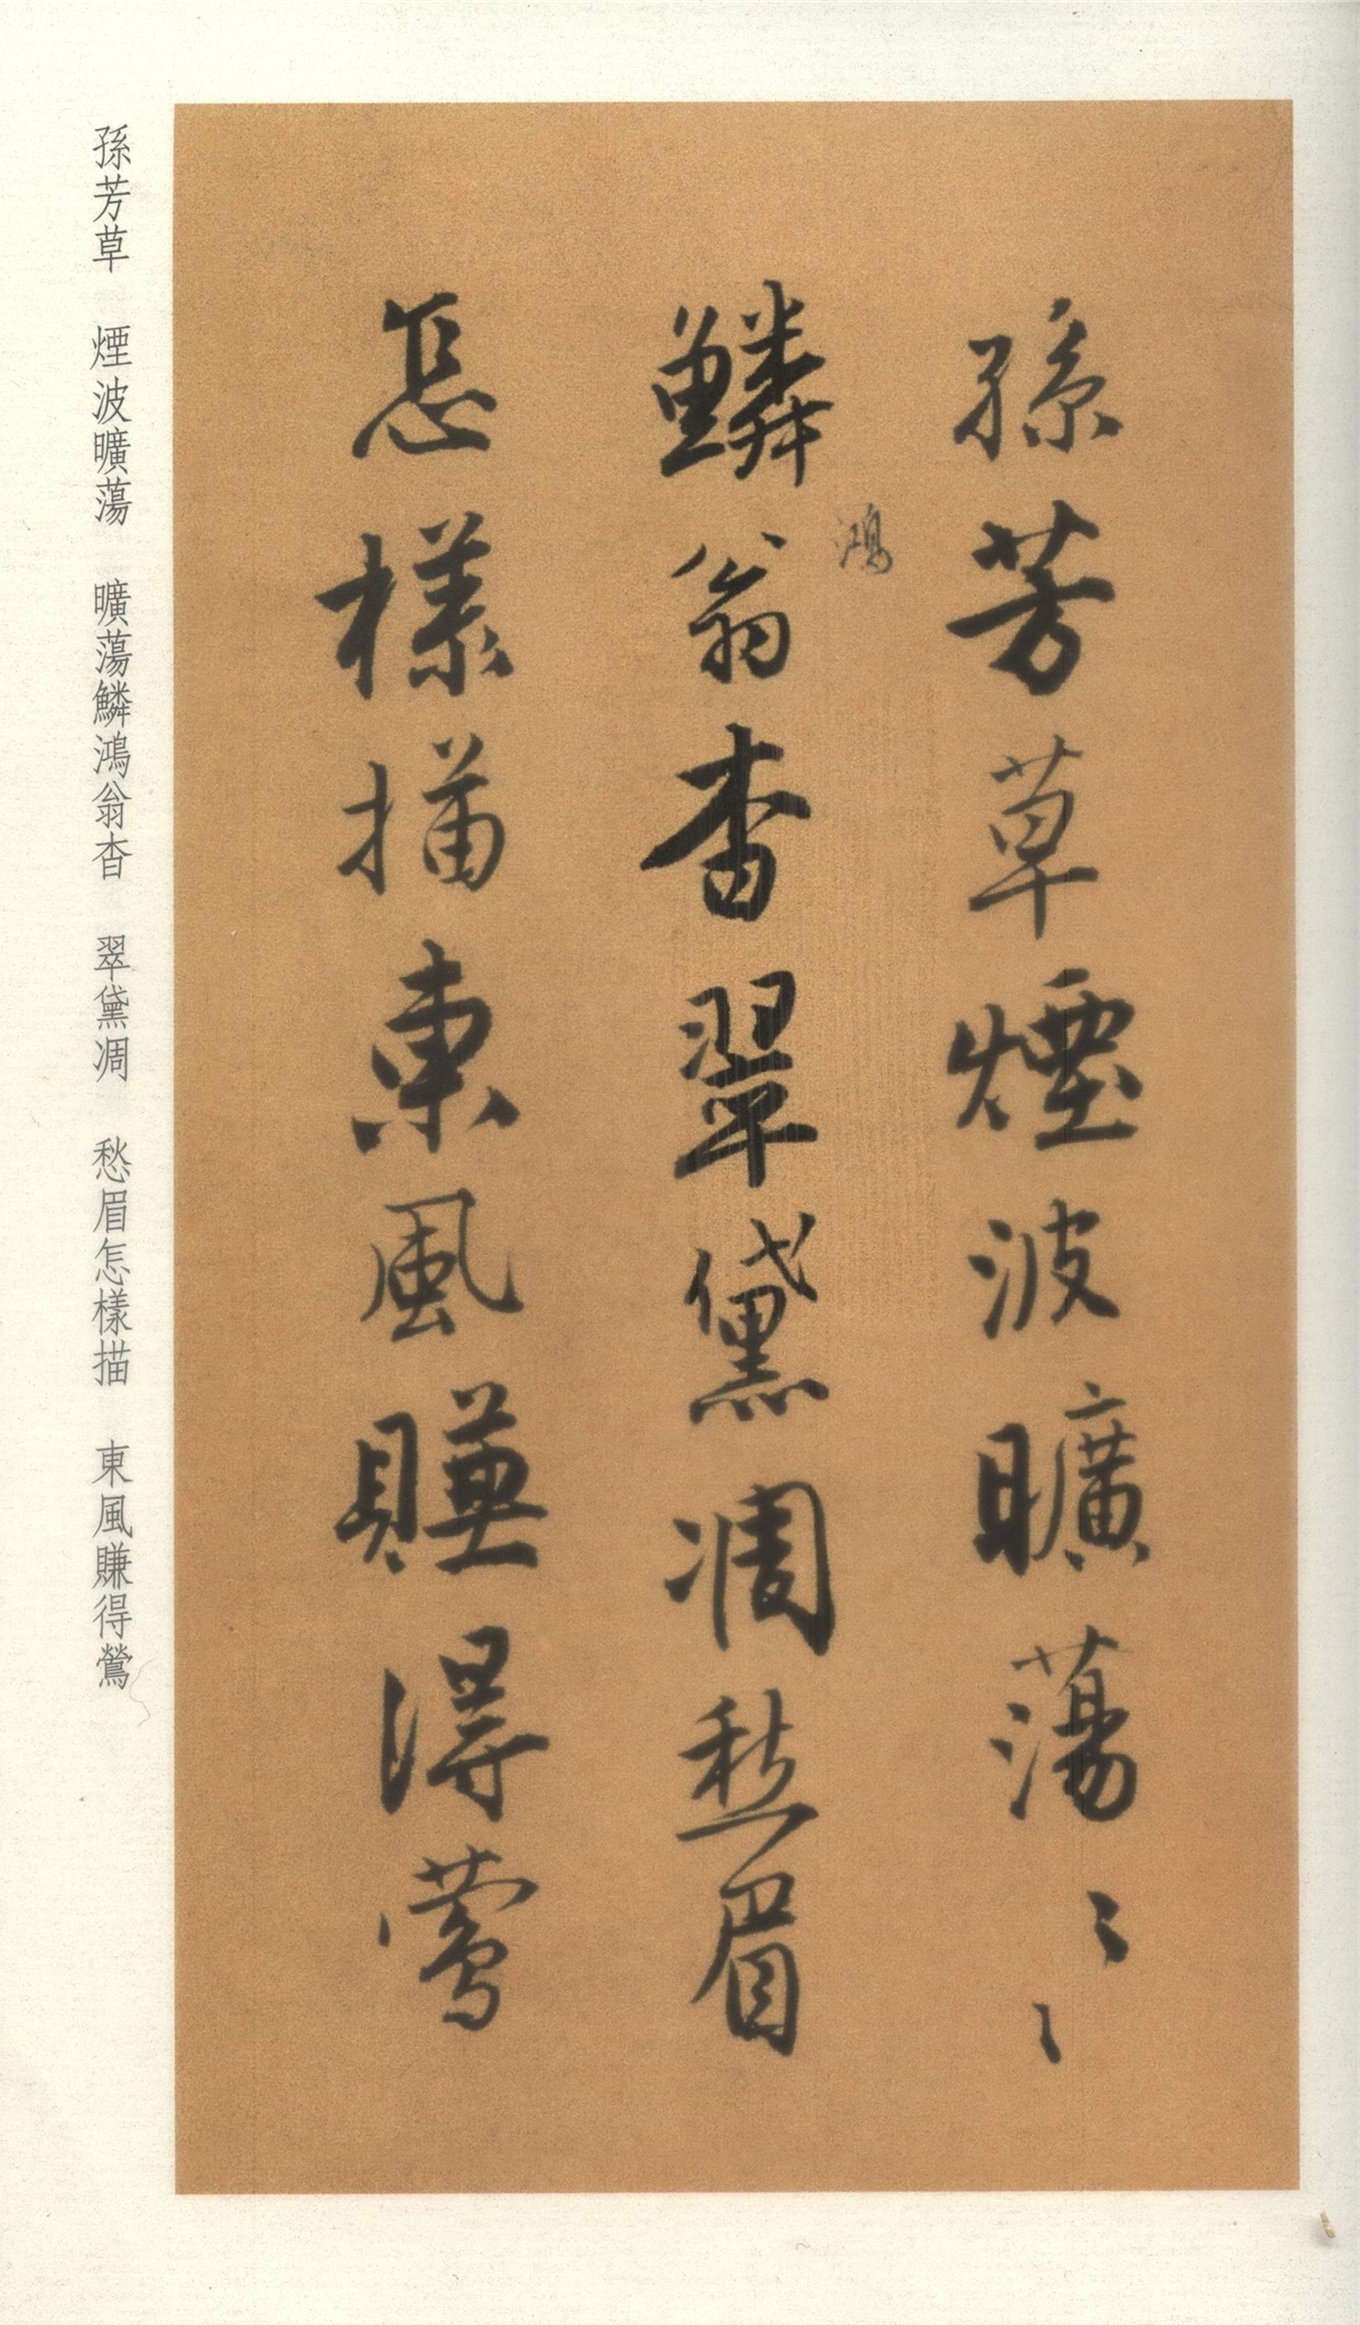 孫芳草煙波曠蕩〻〻
鱗鴻翁杳翠黛凋愁眉
怎樣描東風賺得鶯
孫芳草　煙波曠蕩　曠蕩鱗鴻翁杳　翠黛凋　愁眉怎樣描　東風賺得鶯